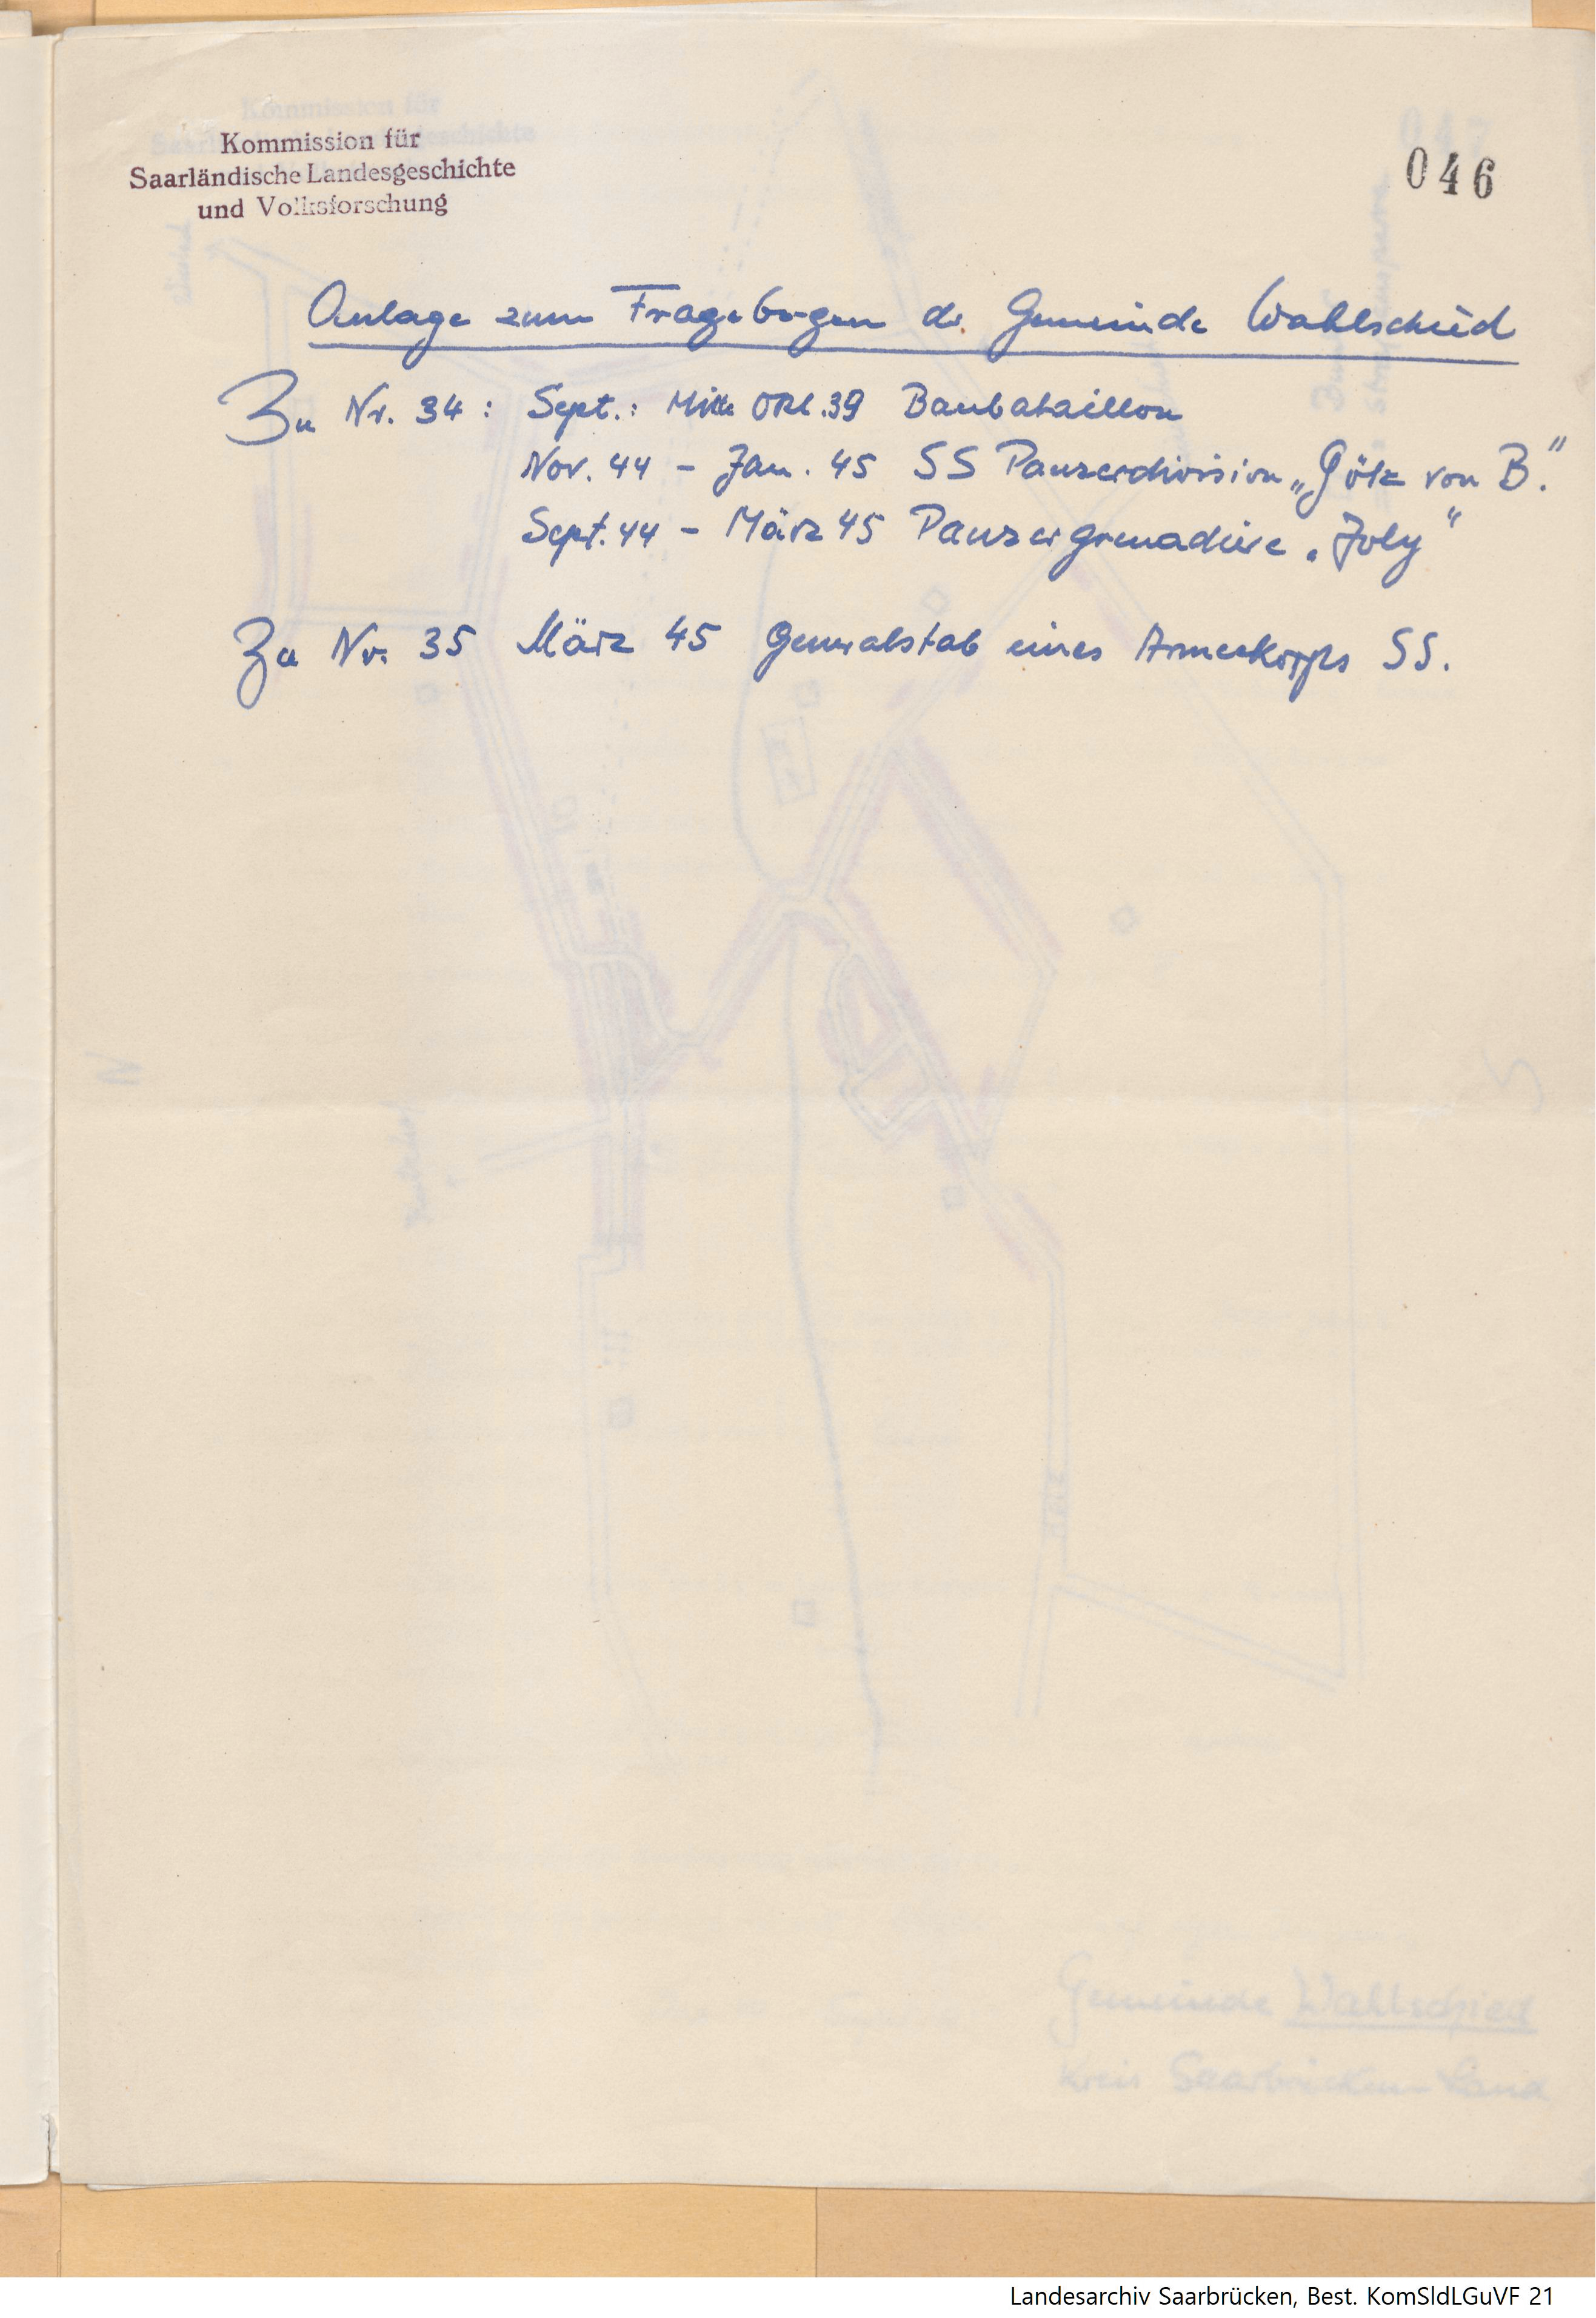 Kommission für
Saarländische Landesgeschichte
und Volksforschung
046
Anlage zum Fragebogen d. Gemeinde Wahlschied
Zu Nr. 34: Sept.: Mitte Okt. 39 Baubataillon
Nov. 44 - Jan. 45 SS Panzerdivision „Götz von B."
Sept. 44 - März 45 Panzergrenadiere „Joly"
Zu Nr. 35 März 45 Generalstab eines Armeekorps SS.
Gemeinde Wahlschied
Kreis Saarbrücken-Land
Landesarchiv Saarbrücken, Best. KomSldLGuVF 21